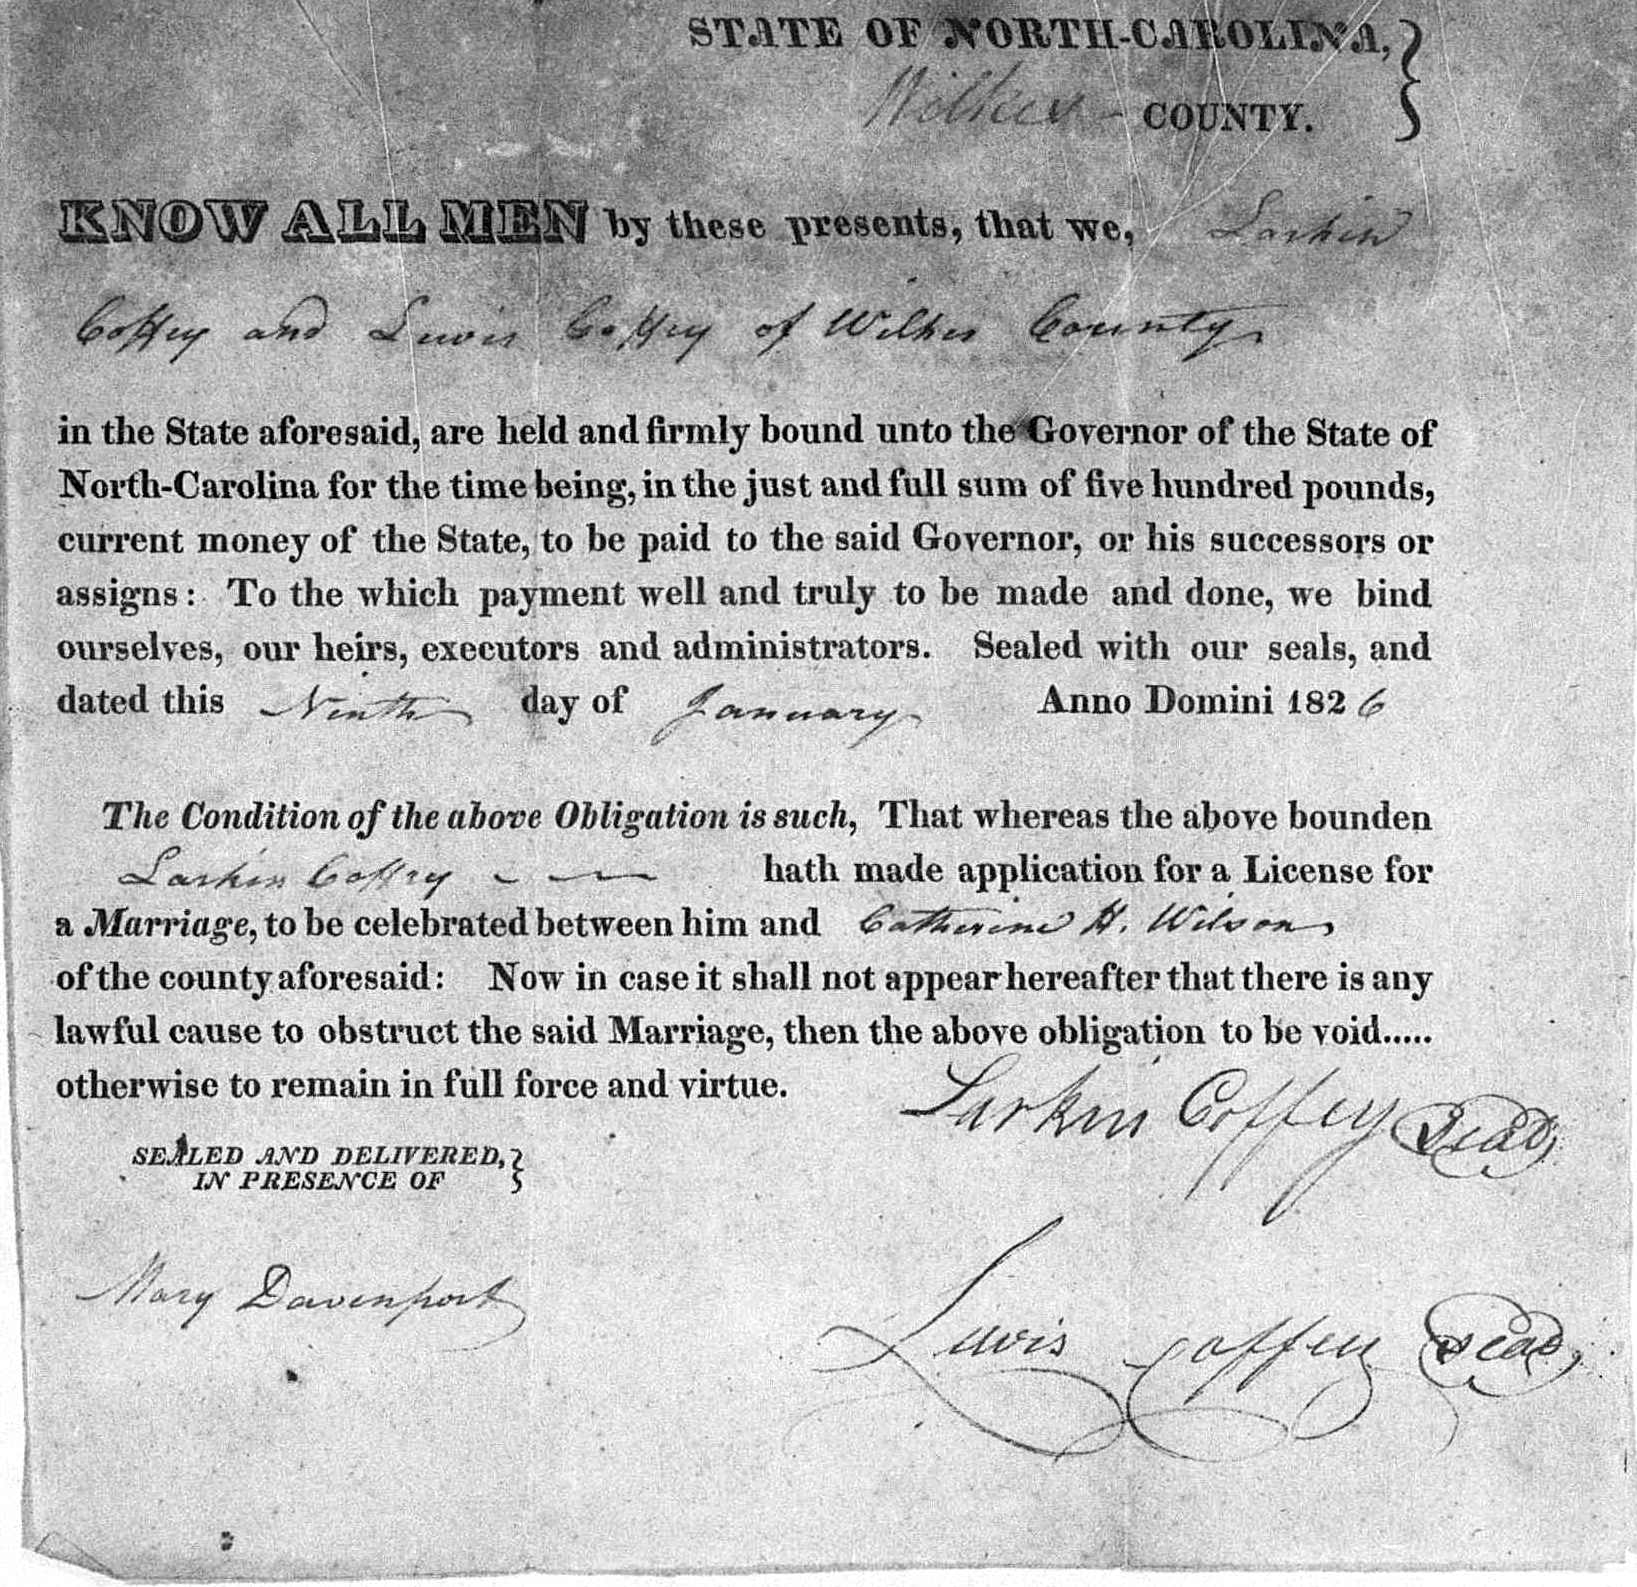 STATE OF NORTH-CAROLINA,
Wilkes COUNTY.
KNOW ALL MEN by these presents, that we, Larkin
Coffey and Lewis Coffey of Wilkes County
in the State aforesaid, are held and firmly bound unto the Governor of the State of
North-Carolina for the time being, in the just and full sum of five hundred pounds,
current money of the State, to be paid to the said Governor, or his successors or
assigns: To the which payment well and truly to be made and done, we bind
ourselves, our heirs, executors and administrators. Sealed with our seals, and
dated this Ninth day of January Anno Domini 1826
The Condition of the above Obligation is such, That whereas the above bounden
Larkin Coffey hath made application for a License for
a Marriage, to be celebrated between him and Catherine H. Wilson
of the county aforesaid: Now in case it shall not appear hereafter that there is any
lawful cause to obstruct the said Marriage, then the above obligation to be void.....
otherwise to remain in full force and virtue.
Larkin Coffey Seal
SEALED AND DELIVERED,
IN PRESENCE OF
Mary Davenport
Lewis Coffey Seal